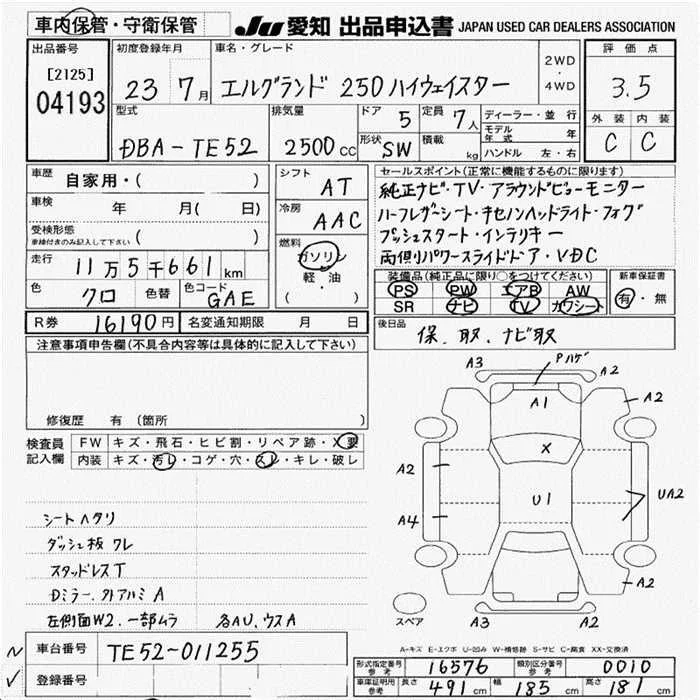 車内保管・守衛保管
JU 愛知 出品申込書 JAPAN USED CAR DEALERS ASSOCIATION
出品番号
[2125]
04193
初度登録年月
23 7月
車名・グレード
エルグランド 250ハイウェイスター
2WD
・
4WD
評価点
3.5
外装 内装
C C
型式
DBA-TE52
排気量
2500cc
ドア
5
定員
7人
形状
SW
積載
kg
ディーラー・並行
モデル年式 年
ハンドル 左・右
車歴
自家用・( )
車検 年 月( 日)
受検形態
車検付きのみ記入して下さい ( )
走行
11万5千661km
色
クロ
色替
色コード
GAE
R券 16190円
名変通知期限 月 日
シフト
AT
冷房
AAC
燃料
ガソリン
軽・油
( )
セールスポイント(正常に機能するものに限ります)
純正ナビ・TV・アラウンドビューモニター
ハーフレザーシート・キセノンヘッドライト・フォグ
プッシュスタート・インテリキー
両側パワースライドドア・VDC
装備品(純正品に限り○をつけてください)
PS PW エアB AW
SR ナビ TV カワシート
新車保証書
有・無
後日品
保、取、ナビ取
注意事項申告欄(不具合内容等は具体的に記入して下さい)
修復歴 有(箇所 )
検査員
記入欄
FW キズ・飛石・ヒビ割・リペア跡・X要
内装 キズ・汚レ・コゲ・穴・スレ・キレ・破レ
シートヘタリ
ダッシュ板ワレ
スタッドレスT
Dミラー、外アルミA
左側面W2、一部ムラ 各AU、ウスA
車台番号 TE52-011255
登録番号
A3
Pハゲ
A2
A1
A2
X
A2
U1
UA2
A4
A2
A3
A2
スペア
A-キズ E-エクボ U-凹み W-補修跡 S-サビ C-腐食 XX-交換済
形式指定番号
参考
16576
類別区分番号
参考
0010
車庫証明用
参考
長さ 491cm
幅 185cm
高さ 181cm